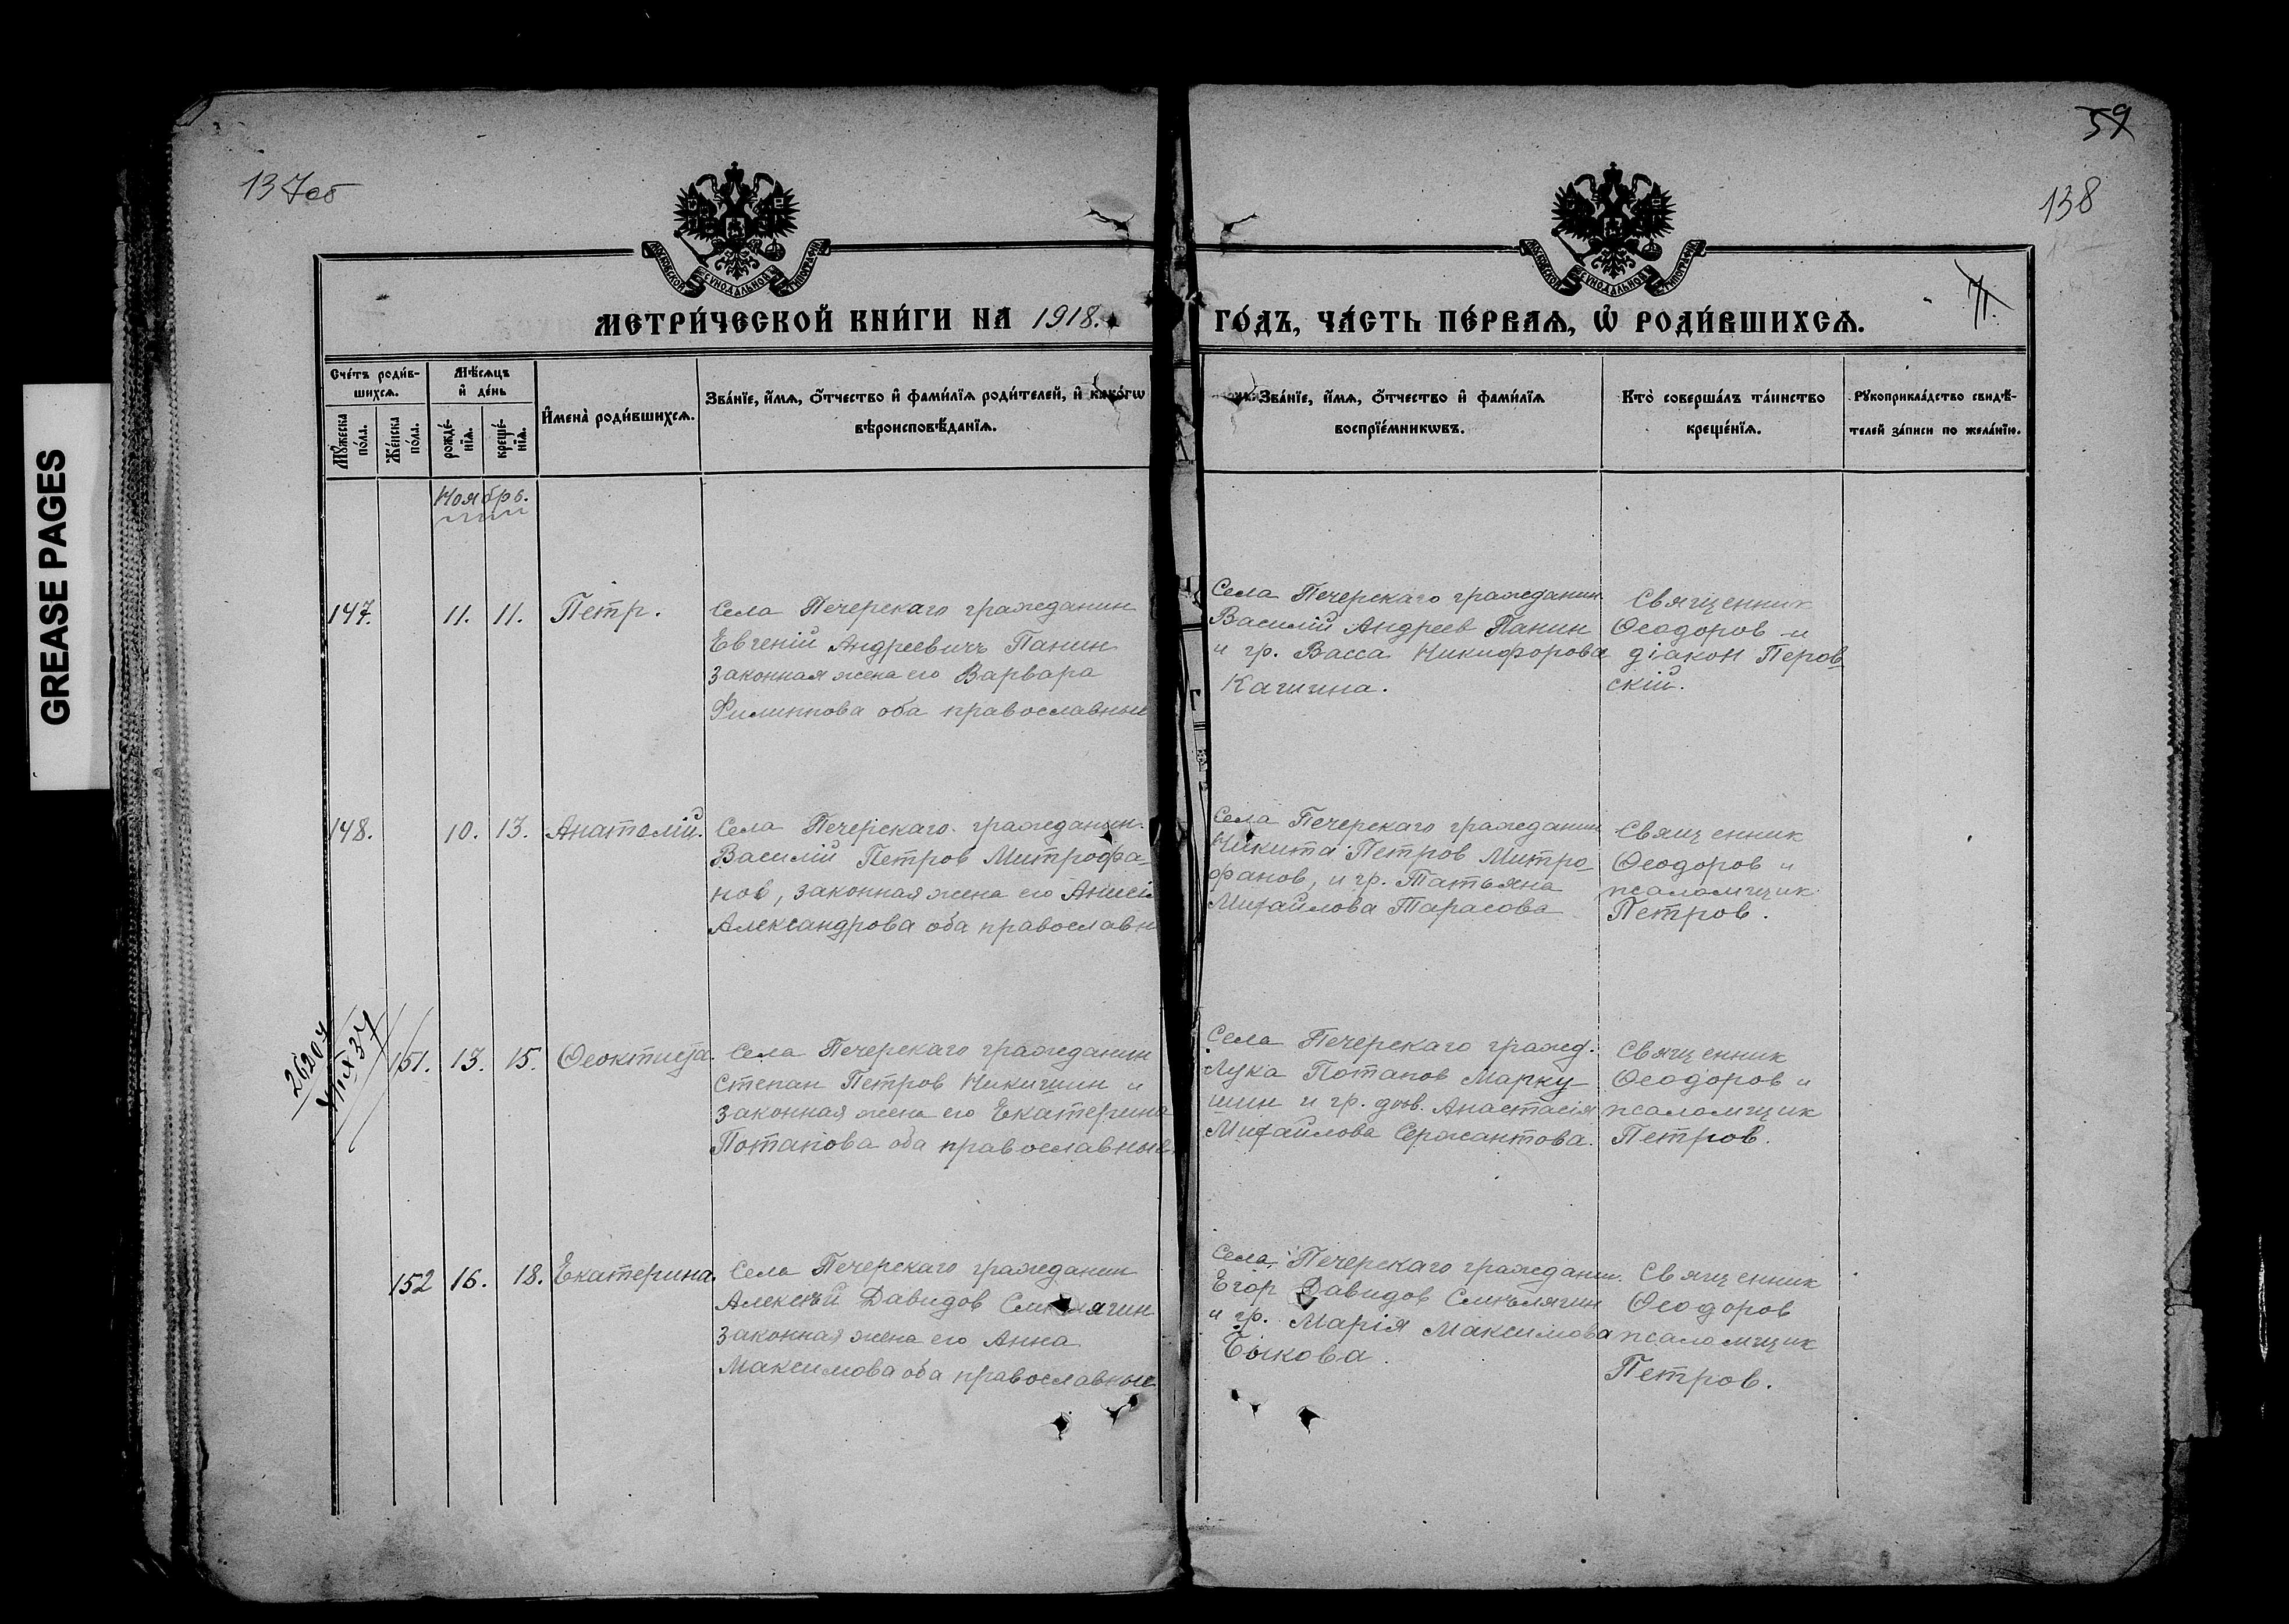 GREASE PAGES
137об
59
138
МОСКОВСКОЙ СѴНОДАЛЬНОЙ ТИПОГРАФІИ
МОСКОВСКОЙ СѴНОДАЛЬНОЙ ТИПОГРАФІИ
МЕТРИ́ЧЕСКОЙ КНИ́ГИ НА 1918.
ГО́ДЪ, ЧА́СТЬ ПЕ́РВАѦ, Ѡ҆ РОДИ́ВШИХСѦ.
71.
Сче́тъ роди́в-
шихсѧ.
Мꙋ́жеска по́ла.
Же́нска по́ла.
Мѣ́сѧцъ
и҆ де́нь
рожде́-
нїѧ.
креще́-
нїѧ.
И҆мена̀ роди́вшихсѧ.
Зва́нїе, и҆́мѧ, ѻ҆́тчество и҆ фами́лїѧ роди́телей, и҆ како́гѡ
вѣроисповѣ́данїѧ.
Зва́нїе, и҆́мѧ, ѻ҆́тчество и҆ фами́лїѧ
воспрїе́мникѡвъ.
Кто̀ соверша́лъ та́инство
креще́нїѧ.
Рꙋкоприкла́дство свидѣ́-
телей за́писи по жела́нїю.
Ноябрь.
147. 11. 11. Петр.
Села Печерскаго гражданин
Евгеній Андреевичъ Панин
законная жена его Варвара
Филиппова оба православные
Села Печерскаго гражданин
Василій Андреев Панин
и гр. Васса Никифорова
Кашина.
Священник
Ѳеодоров и
діакон Перов-
скій.
148. 10. 13. Анатолій.
Села Печерскаго гражданин.
Василій Петров Митрофа-
нов, законная жена его Анисія
Александрова оба православн
Села Печерскаго гражданин
Никита Петров Митро-
фанов, и гр. Татьяна
Михайлова Тарасова
Священник
Ѳеодоров и
псаломщик
Петров.
26204
151. 13. 15. Ѳеоктиста.
Села Печерскаго гражданин
Степан Петров Никишин и
законная жена его Екатерина
Потапова оба православные.
Села Печерскаго гражд.
Лука Потапов Марку-
шин и гр. дев. Анастасія
Михайлова Сержантова.
Священник
Ѳеодоров и
псаломщик
Петров.
152 16. 18. Екатерина.
Села Печерскаго гражданин
Алексѣй Давидов
законная жена его Анна
Максимова оба православные
Села Печерскаго гражданин.
Егор Давидов
и гр. Марія Максимова
Быкова.
Священник
Ѳеодоров
псаломщик
Петров.